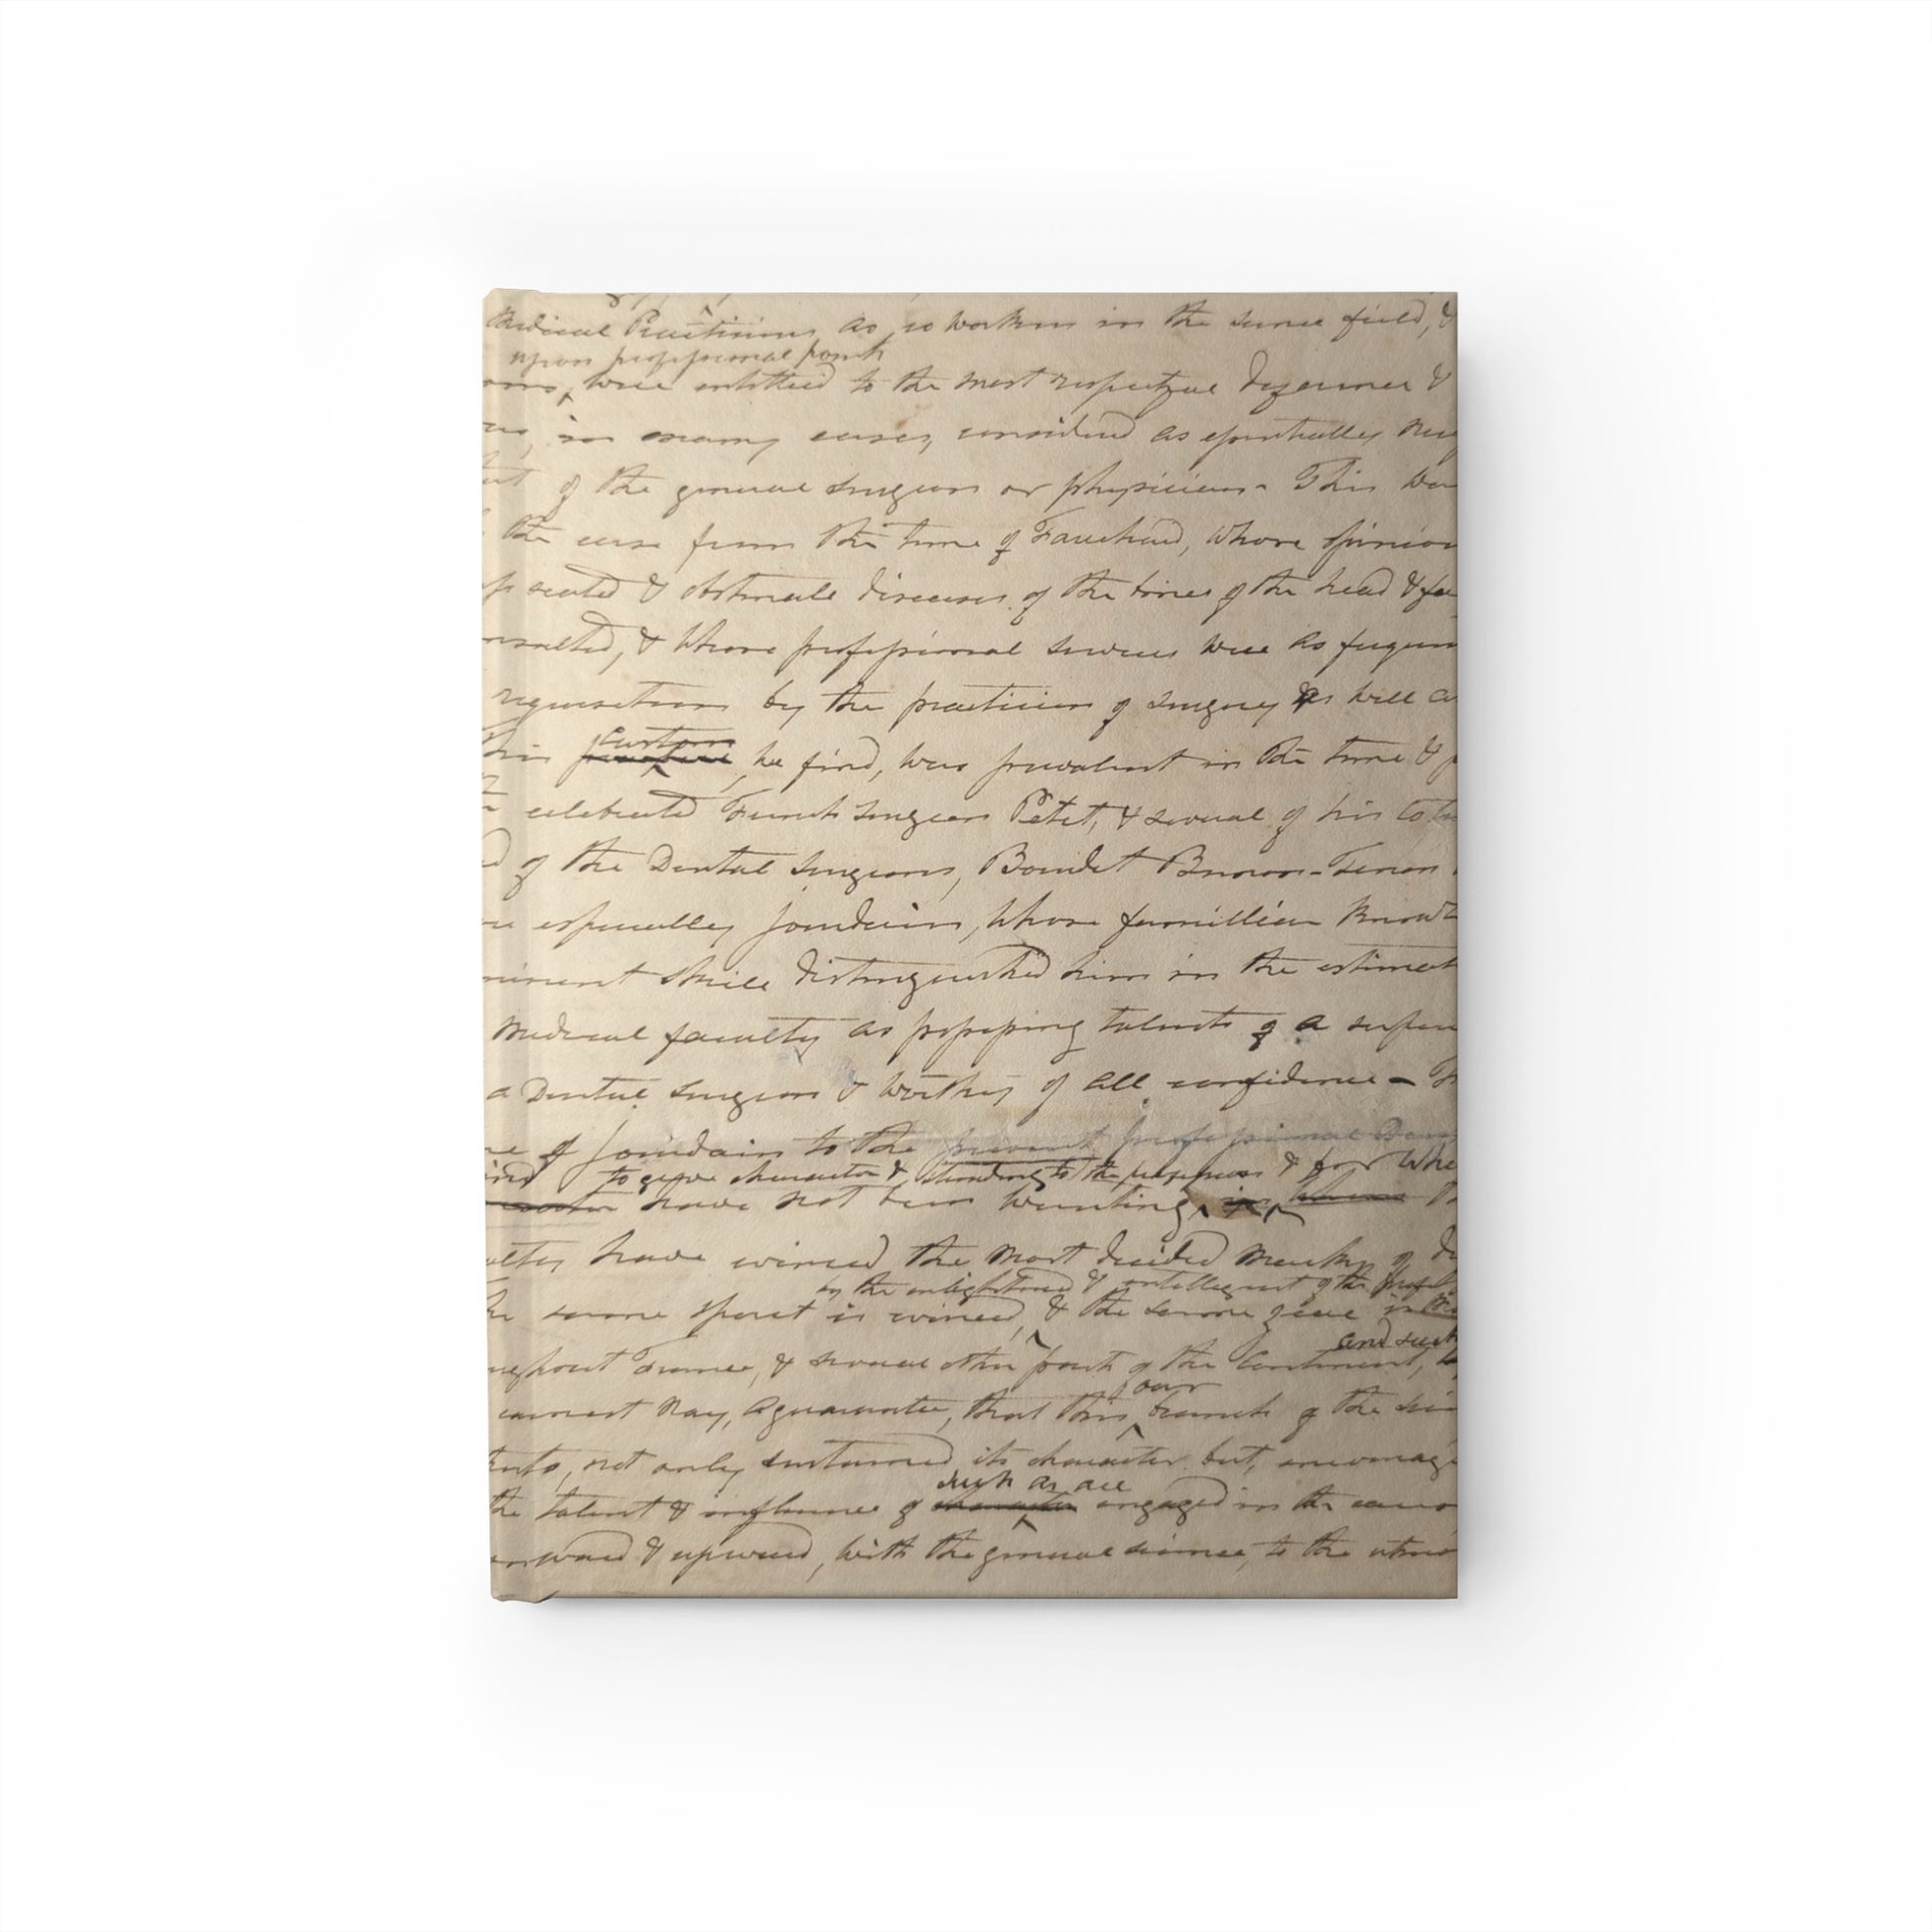 Medical Practitions as co workers in the same field, &
upon professional points
were entitled to the most respectful deference &
in many cases, considered as essentially
of the general surgeon or physician - This
the case from the time of Fauchard, whose opinion
& obstinate diseases of the bones of the head &
& whose professional services were as
requisition by the practician of surgery as well
custom
he find, was prevalent in the time &
celebrated French surgeon Petit, & several of his
of the Dental surgeons, Bourdet
especially Jourdain, whose familliar
skill distinguished him in the
medical faculty as possessing talents of a
a Dental surgeon & worthy of all confidence -
of Jourdain to the present professional
to give character & standing to the profession & for
have not been wanting
have evinced the most decided marks of
by the enlightened & intelligent of the
same spirit is evinced, & the same zeal in
and such
France, & several other parts of the Continent,
our
earnest nay, a guarantee, that this branch of the
not only sustained its character but,
such as are
the talent & influence of character engaged in the
onward & upward, with the general science, to the